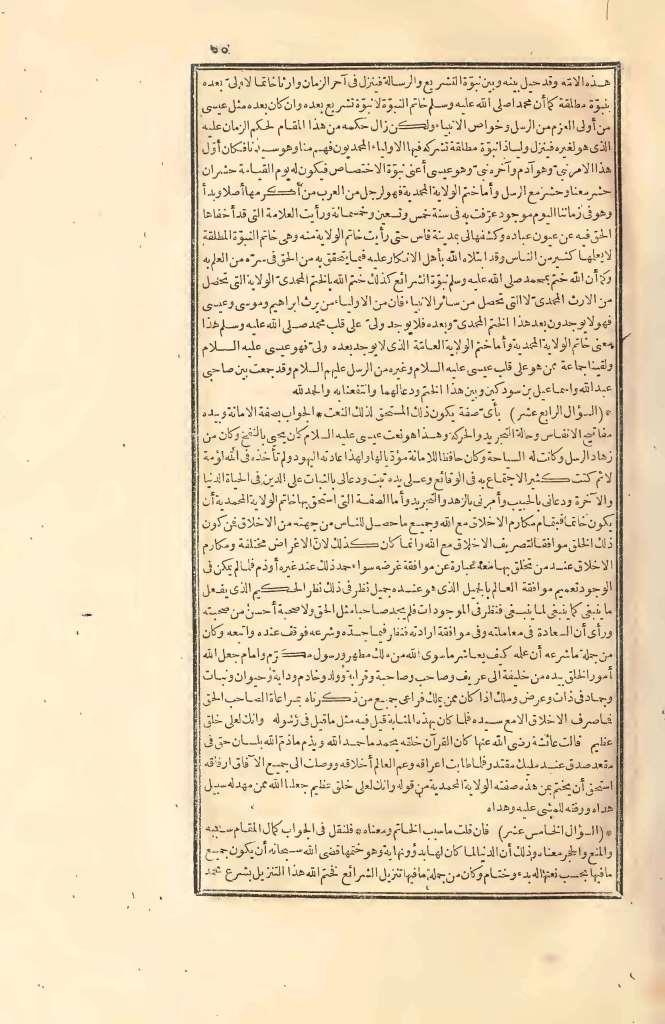 ٥٠
هذه الامّة وقد حيل بينه وبين نبوّة التشريع والرسالة فينزل فى آخر الزمان وارثا خاتما لا ولىّ بعده
بنبوّة مطلقة كما أن محمدا صلى الله عليه وسلم خاتم النبوّة لا نبوّة تشريع بعده وان كان بعده مثل عيسى
من أولى العزم من الرسل وخواص الانبياء ولكن زال حكمه من هذا المقام لحكم الزمان عليه
الذى هو لغيره فينزل وليا ذا نبوّة مطلقة تشركه فيها الاولياء المحمديون فهو منا وهو سيدنا فكان أوّل
هذا الامر نبىّ وهو آدم وآخره نبىّ وهو عيسى أعنى نبوّة الاختصاص فيكون له يوم القيامة حشران
حشر معنا وحشر مع الرسل وأما ختم الولاية المحمدية فهو لرجل من العرب من أكرمها أصلا ويدا
وهو فى زماننا اليوم موجود عرّفت به فى سنة خمس وتسعين وخمسمائة ورأيت العلامة التى قد أخفاها
الحق فيه عن عيون عباده وكشفها لى بمدينة فاس حتى رأيت خاتم الولاية منه وهى خاتم النبوّة المطلقة
لا يعلمها كثير من الناس وقد ابتلاه الله بأهل الانكار عليه فيما يتحقق به من الحق فى سرّه من العلم به
وكما أن الله ختم بمحمد صلى الله عليه وسلم نبوّة الشرائع كذلك ختم الله بالختم المحمدىّ الولاية التى تحصل
من الارث المحمدىّ لا التى تحصل من سائر الانبياء فان من الاولياء من يرث ابراهيم وموسى وعيسى
فهؤلاء يوجدون بعد هذا الختم المحمدىّ وبعده فلا يوجد ولىّ على قلب محمد صلى الله عليه وسلم هذا
معنى خاتم الولاية المحمدية وأما ختم الولاية العامّة الذى لا يوجد بعده ولىّ فهو عيسى عليه السلام
ولقينا جماعة ممن هو على قلب عيسى عليه السلام وغيره من الرسل عليهم السلام وقد جمعت بين صاحبى
عبد الله واسماعيل بن سودكين وبين هذا الختم ودعا لهما وانتفعا به والحمد لله
* (السؤال الرابع عشر) بأى صفة يكون ذلك المستحق لذلك النعت * الجواب بصفة الامانة وبيده
مفاتيح الانفاس وحالة التجريد والحركة وهذا هو نعت عيسى عليه السلام كان يحيى بالنفخ وكان من
زهاد الرسل وكانت له السياحة وكان حافظا للامانة مؤدّيا لها ولهذا عادته اليهود ولم تأخذه فى الله لومة
لائم كنت كثير الاجتماع به فى الوقائع وعلى يده تبت ودعا لى بالثبات على الدين فى الحياة الدنيا
والآخرة ودعانى بالحبيب وأمرنى بالزهد والتجريد وأما الصفة التى استحق بها خاتم الولاية المحمدية أن
يكون خاتما فبتمام مكارم الاخلاق مع الله وجميع ما حصل للناس من جهته من الاخلاق فمن كون
ذلك الخلق موافقا لتصريف الاخلاق مع الله وانما كان كذلك لانّ الاغراض مختلفة ومكارم
الاخلاق عند من تخلق بها معه عبارة عن موافقة غرضه سواء حمد ذلك عند غيره أو ذم فلما لم يمكن فى
الوجود تعميم موافقة العالم بالجميل الذى هو عنده جميل نظر فى ذلك نظر الحكيم الذى يفعل
ما ينبغى كما ينبغى لما ينبغى فنظر فى الموجودات فلم يجد صاحبا مثل الحق ولا صحبة أحسن من صحبته
ورأى أن السعادة فى معاملته وفى موافقة ارادته فنظر فيما حدّه وشرعه فوقف عنده واتبعه وكان
من جملة ما شرعه أن علمه كيف يعاشر ما سوى الله من ملك مطهر ورسول مكرّم وامام جعل الله
أمور الخلق بيده من خليفة الى عريف وصاحب وصاحبة وقرابة وولد وخادم ودابة وحيوان ونبات
وجماد فى ذات وعرض وملك اذا كان ممن يملك فراعى جميع من ذكرناه بمراعاة الصاحب الحق
فما صرف الاخلاق الا مع سيده فلما كان بهذه المثابة قيل فيه مثل ما قيل فى رسوله وانك لعلى خلق
عظيم قالت عائشة رضى الله عنها كان القرآن خلقه يحمد ما حمد الله ويذم ما ذمّ الله بلسان حق فى
مقعد صدق عند مليك مقتدر فلما طابت اعراقه وعم العالم أخلاقه ووصلت الى جميع الآفاق ارفاقه
استحق أن يختم بمن هذه صفته الولاية المحمدية من قوله وانك لعلى خلق عظيم جعلنا الله ممن مهد له سبيل
هداه ووفقه للمشى عليه وهداه
* (السؤال الخامس عشر) فان قلت ما سبب الخاتم ومعناه * فلنقل فى الجواب كمال المقام سببه
والمنع والحجر معناه وذلك أن الدنيا لما كان لها بدؤ ونهاية وهو ختمها قضى الله سبحانه أن يكون جميع
ما فيها بحسب نعتها له بدء وختام وكان من جملة ما فيها تنزيل الشرائع فختم الله هذا التنزيل بشرع محمد